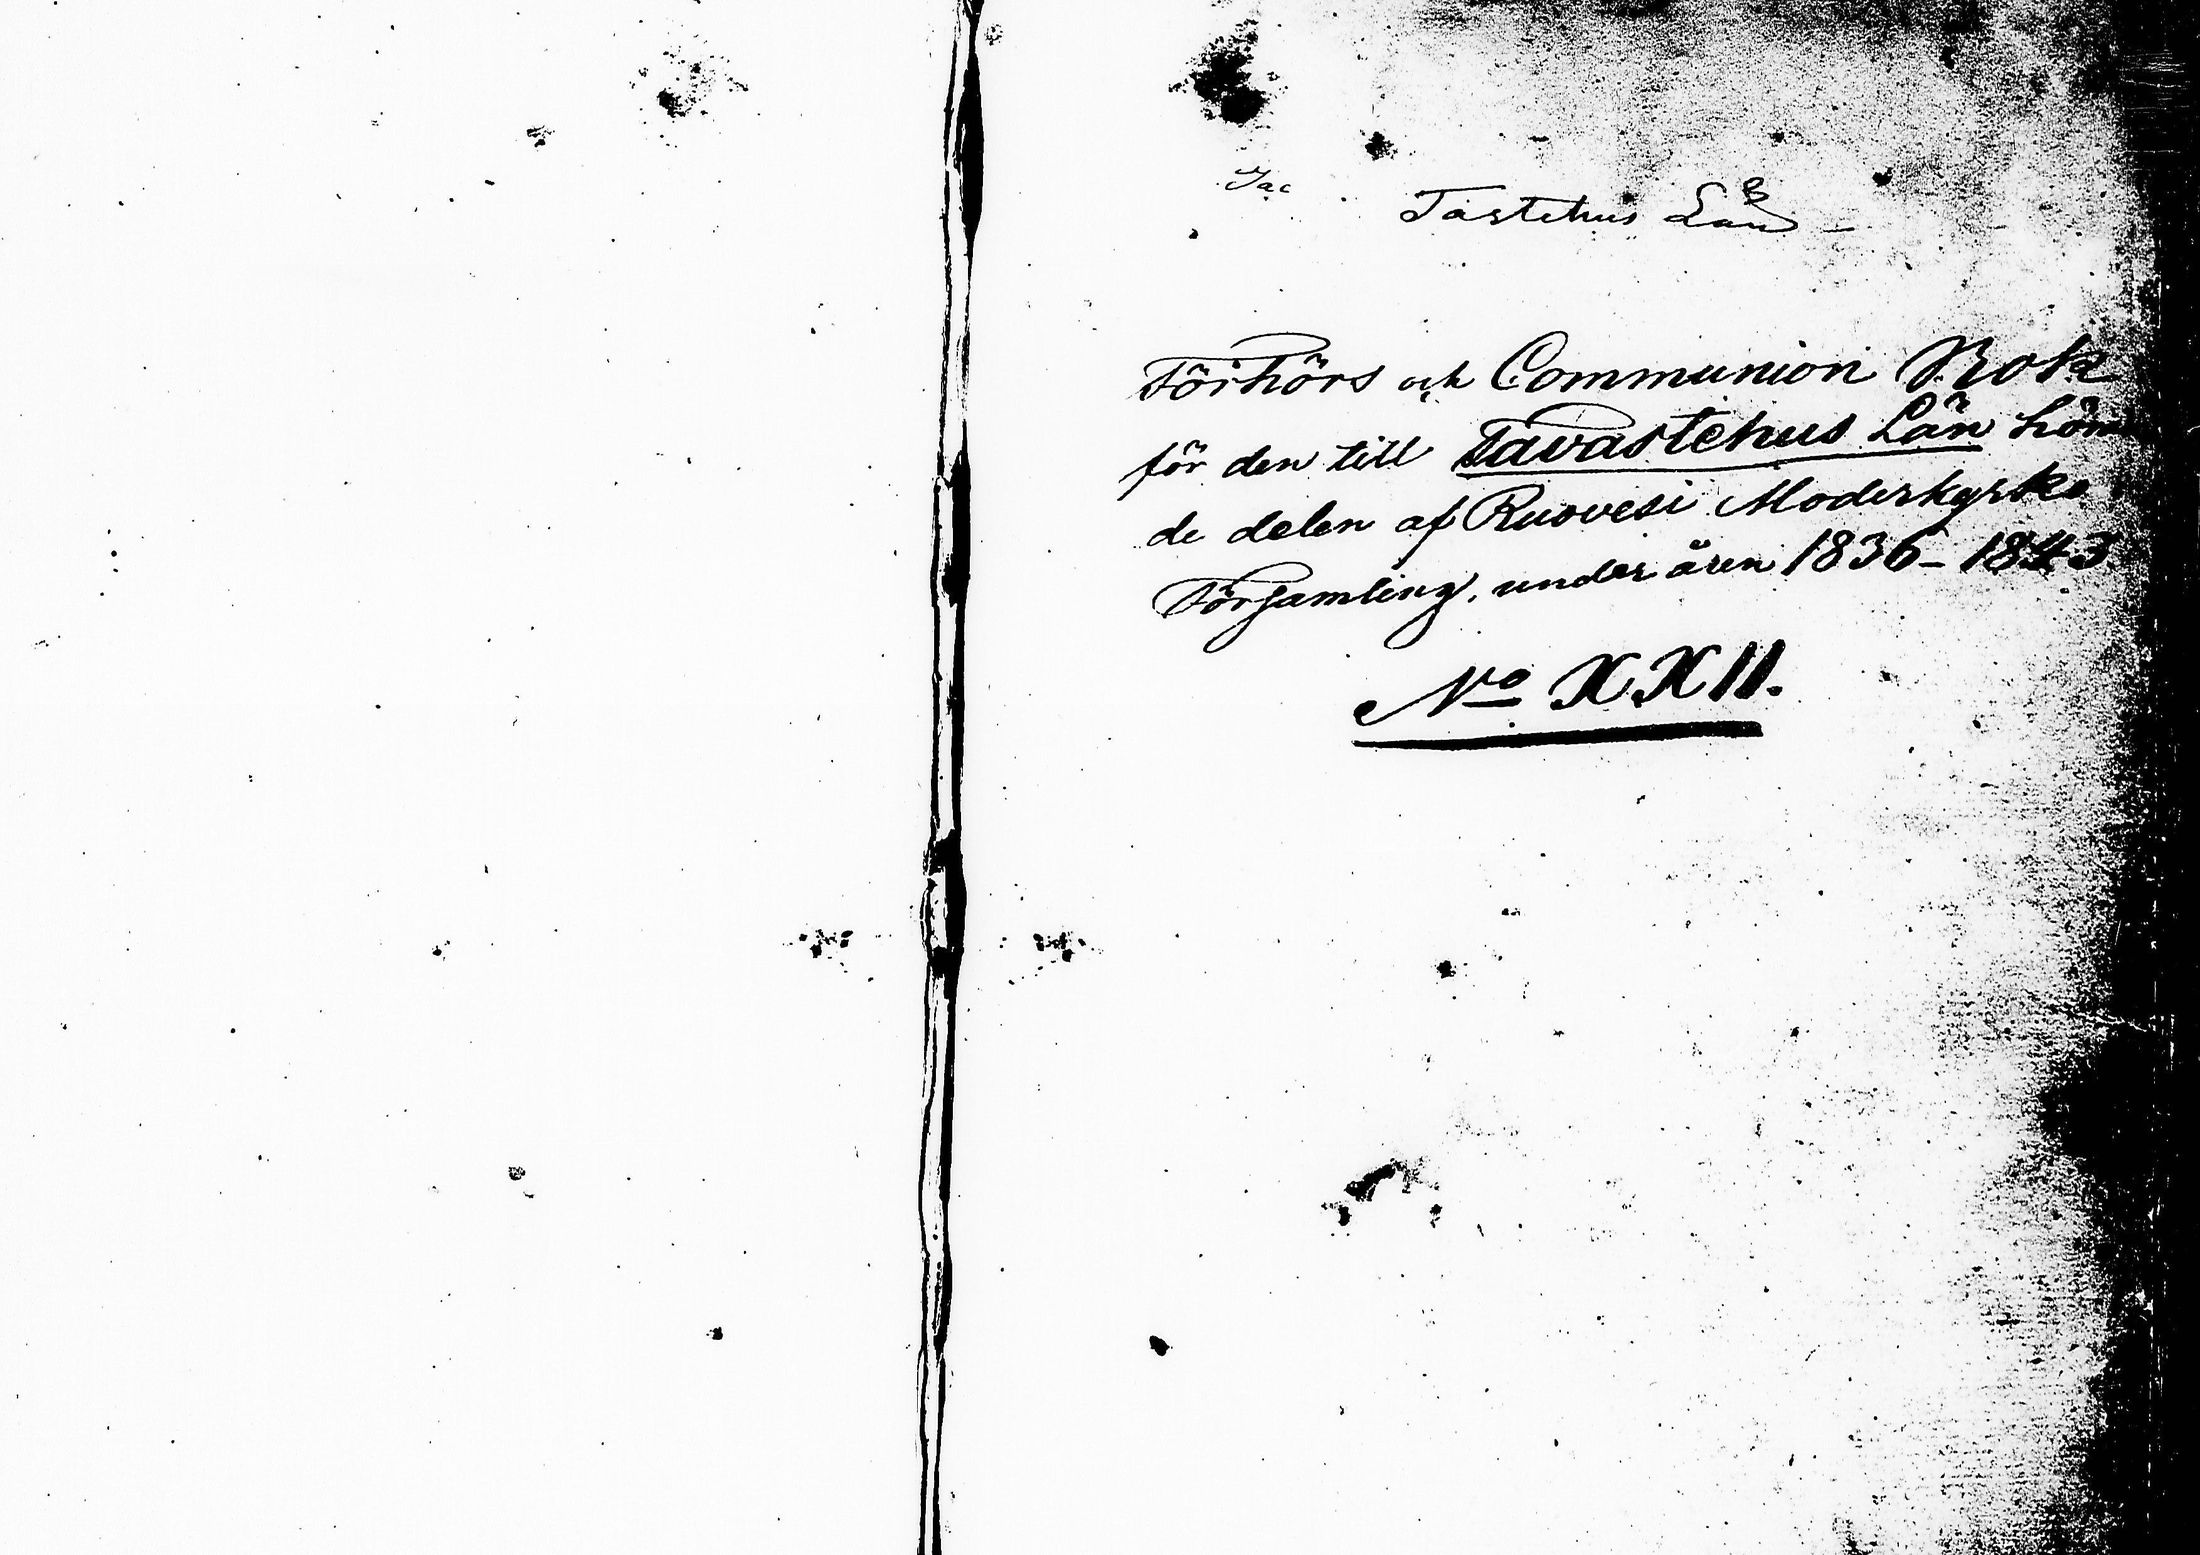 Tac
Tastehus Län
Förhörs och Communion Bok
för den till Tavastehus Län höran
de delen af Ruovesi Moderkyrko
Församling, under åren 1836-1843
No XXII.